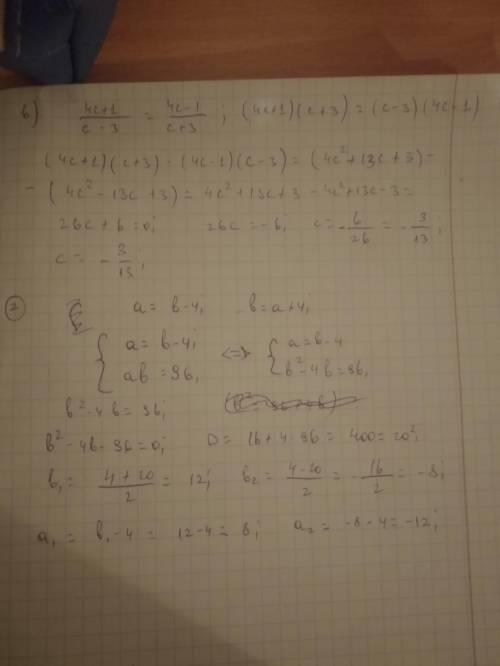 б) (4c+1)/(c-3) = (4c-1)/(c+3) ; (4c+1)(c+3) = (c-3)(4c-1)
(4c+1)(c+3) - (4c-1)(c-3) = (4c²+13c+3) -
- (4c²-13c+3) = 4c²+13c+3 - 4c²+13c-3 =
26c+6=0; 26c=-6; c=-6/26 = -3/13;
c = -3/13;
② a = b-4; b=a+4;
{ a=b-4; ab=96; <=> { a=b-4 b²-4b=96;
b²-4b=96;
b²-4b-96=0; D = 16+4·96 = 400=20²;
b₁ = (4+20)/2 = 12; b₂ = (4-20)/2 = -16/2 = -8;
a₁ = b₁-4 = 12-4 = 8; a₂ = -8-4=-12;